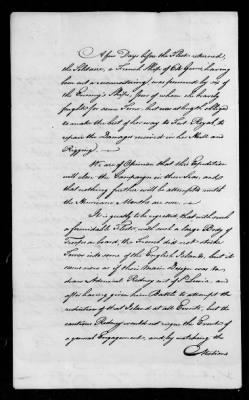 A few Days before the Fleet returned,
the Solitaire, a French Ship of 64 Guns, having
been out a reconnoitring, was pursued by six of
the Enemy's Ships, four of whom she bravely
fought for some Time, but was at length obliged
to make the best of her way to Fort Royal, to
repair the Damages received in her Hull and
Rigging.
We are of Opinion that this Expedition
will close the Campaign in these Seas, and
that nothing further will be attempted until
the Hurricane Months are over.
It is greatly to be regretted, that with such
a formidable Fleet, with such a large Body of
Troops on board, the French did not strike
Terror into some of the English Islands, but it
seems as if their Main Design was to
draw Admiral Rodney out of St. Lucia, and
after having given him Battle to attempt the
reduction of that Island at all Events, but the
cautious Rodney would not risque the Event of
a general Engagement, and by watching the
Motions